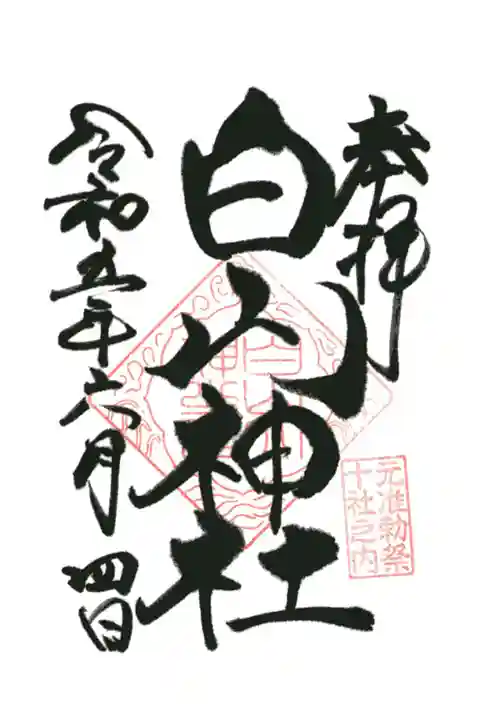 奉拝
元准勅祭
十社之内
白山神社
令和五年六月四日